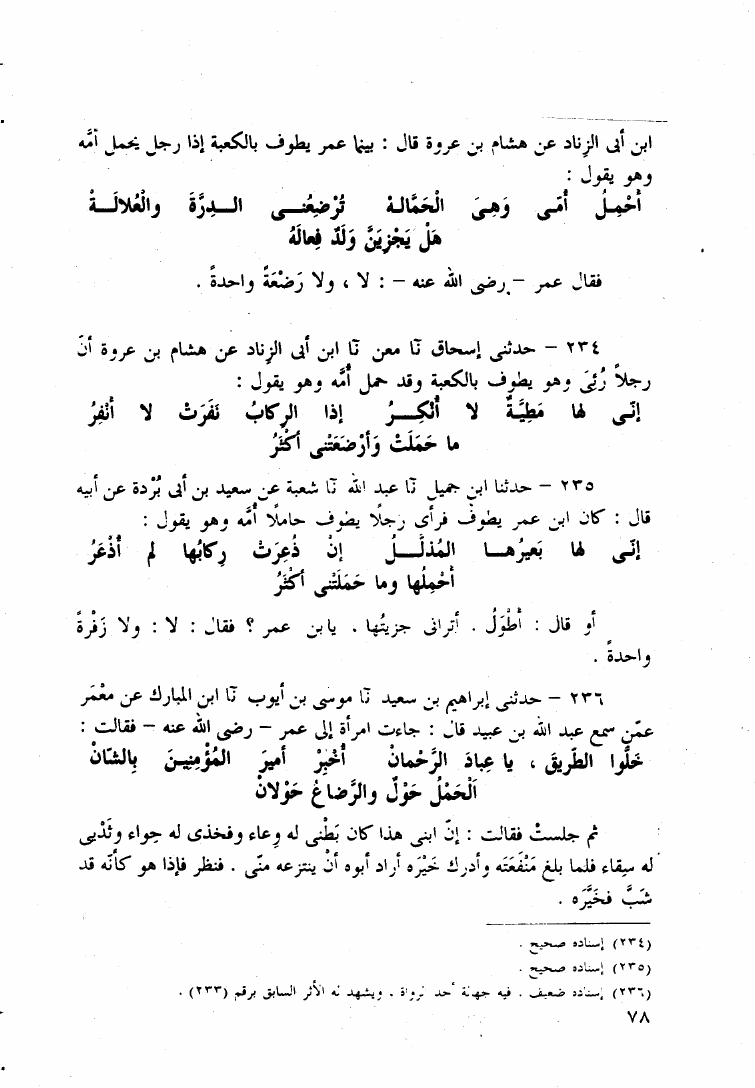 ابن أبى الزناد عن هشام بن عروة قال : بينما عمر يطوف بالكعبة إذا رجل يحمل أمَّه
وهو يقول :
أَحْمِلُ أُمّى وَهِىَ الْحَمَّالهْ تُرْضِعُنى الدِرَّةَ والْعُلالَهْ
هَلْ يَجْزِيَنَّ وَلَدٌ فِعالَهُ
فقال عمر – رضى الله عنه – : لا ، ولا رَضْعَةً واحدةً .
٢٣٤ – حدثنى إسحاق نَا معن نَا ابن أبى الزناد عن هشام بن عروة أنّ
رجلاً رُئِىَ وهو يطوف بالكعبة وقد حمل أمَّه وهو يقول :
إنّى لها مَطِيَّةٌ لا أُنْكِرُ إذا الرِكابُ نَفَرَتْ لا أَنْفِرُ
ما حَمَلَتْ وَأَرْضَعَتْنى أكْثَرُ
٢٣٥ – حدثنا ابن جميل نَا عبد الله نَا شعبة عن سعيد بن أبى بُرْدة عن أبيه
قال : كان ابن عمر يطوف فرأى رجلًا يطوف حاملًا أمَّه وهو يقول :
إنّى لها بَعيرُها المُذلَّلُ إنْ ذُعِرَتْ رِكابُها لم أُذْعَرُ
أحْمِلُها وما حَمَلَتْنى أكْثَرُ
أو قال : أطْوَلُ . أترانى جزيتُها . يابن عمر ؟ فقال : لا : ولا زَفْرةً
واحدةً .
٢٣٦ – حدثنى إبراهيم بن سعيد نَا موسى بن أيوب نَا ابن المبارك عن مَعْمَر
عمّن سمع عبد الله بن عبيد قال : جاءت امرأة إلى عمر – رضى الله عنه – فقالت :
خَلُّوا الطَّريقَ ، يا عِبادَ الرَّحْمانْ أُخْبِرْ أميرَ المُؤْمِنِينَ بِالشّانْ
اَلْحَمْلُ حَوْلٌ والرَّضاعُ حَوْلانْ
ثم جلستْ فقالت : إنّ ابنى هذا كان بَطْنى له وِعاء وفخذى له حِواء وثَدْيى
له سِقاء فلما بلغ مَنْفَعَته وأدرك خَيْرَه أراد أبوه أنْ ينتزعه منّى . فنظر فإذا هو كأنّه قد
شَبَّ فخَيَّرَه .
(٢٣٤) إسناده صحيح .
(٢٣٥) إسناده صحيح .
(٢٣٦) إسناده ضعيف . فيه جهالة أحد الرواة . ويشهد له الأثر السابق برقم (٢٣٣) .
٧٨